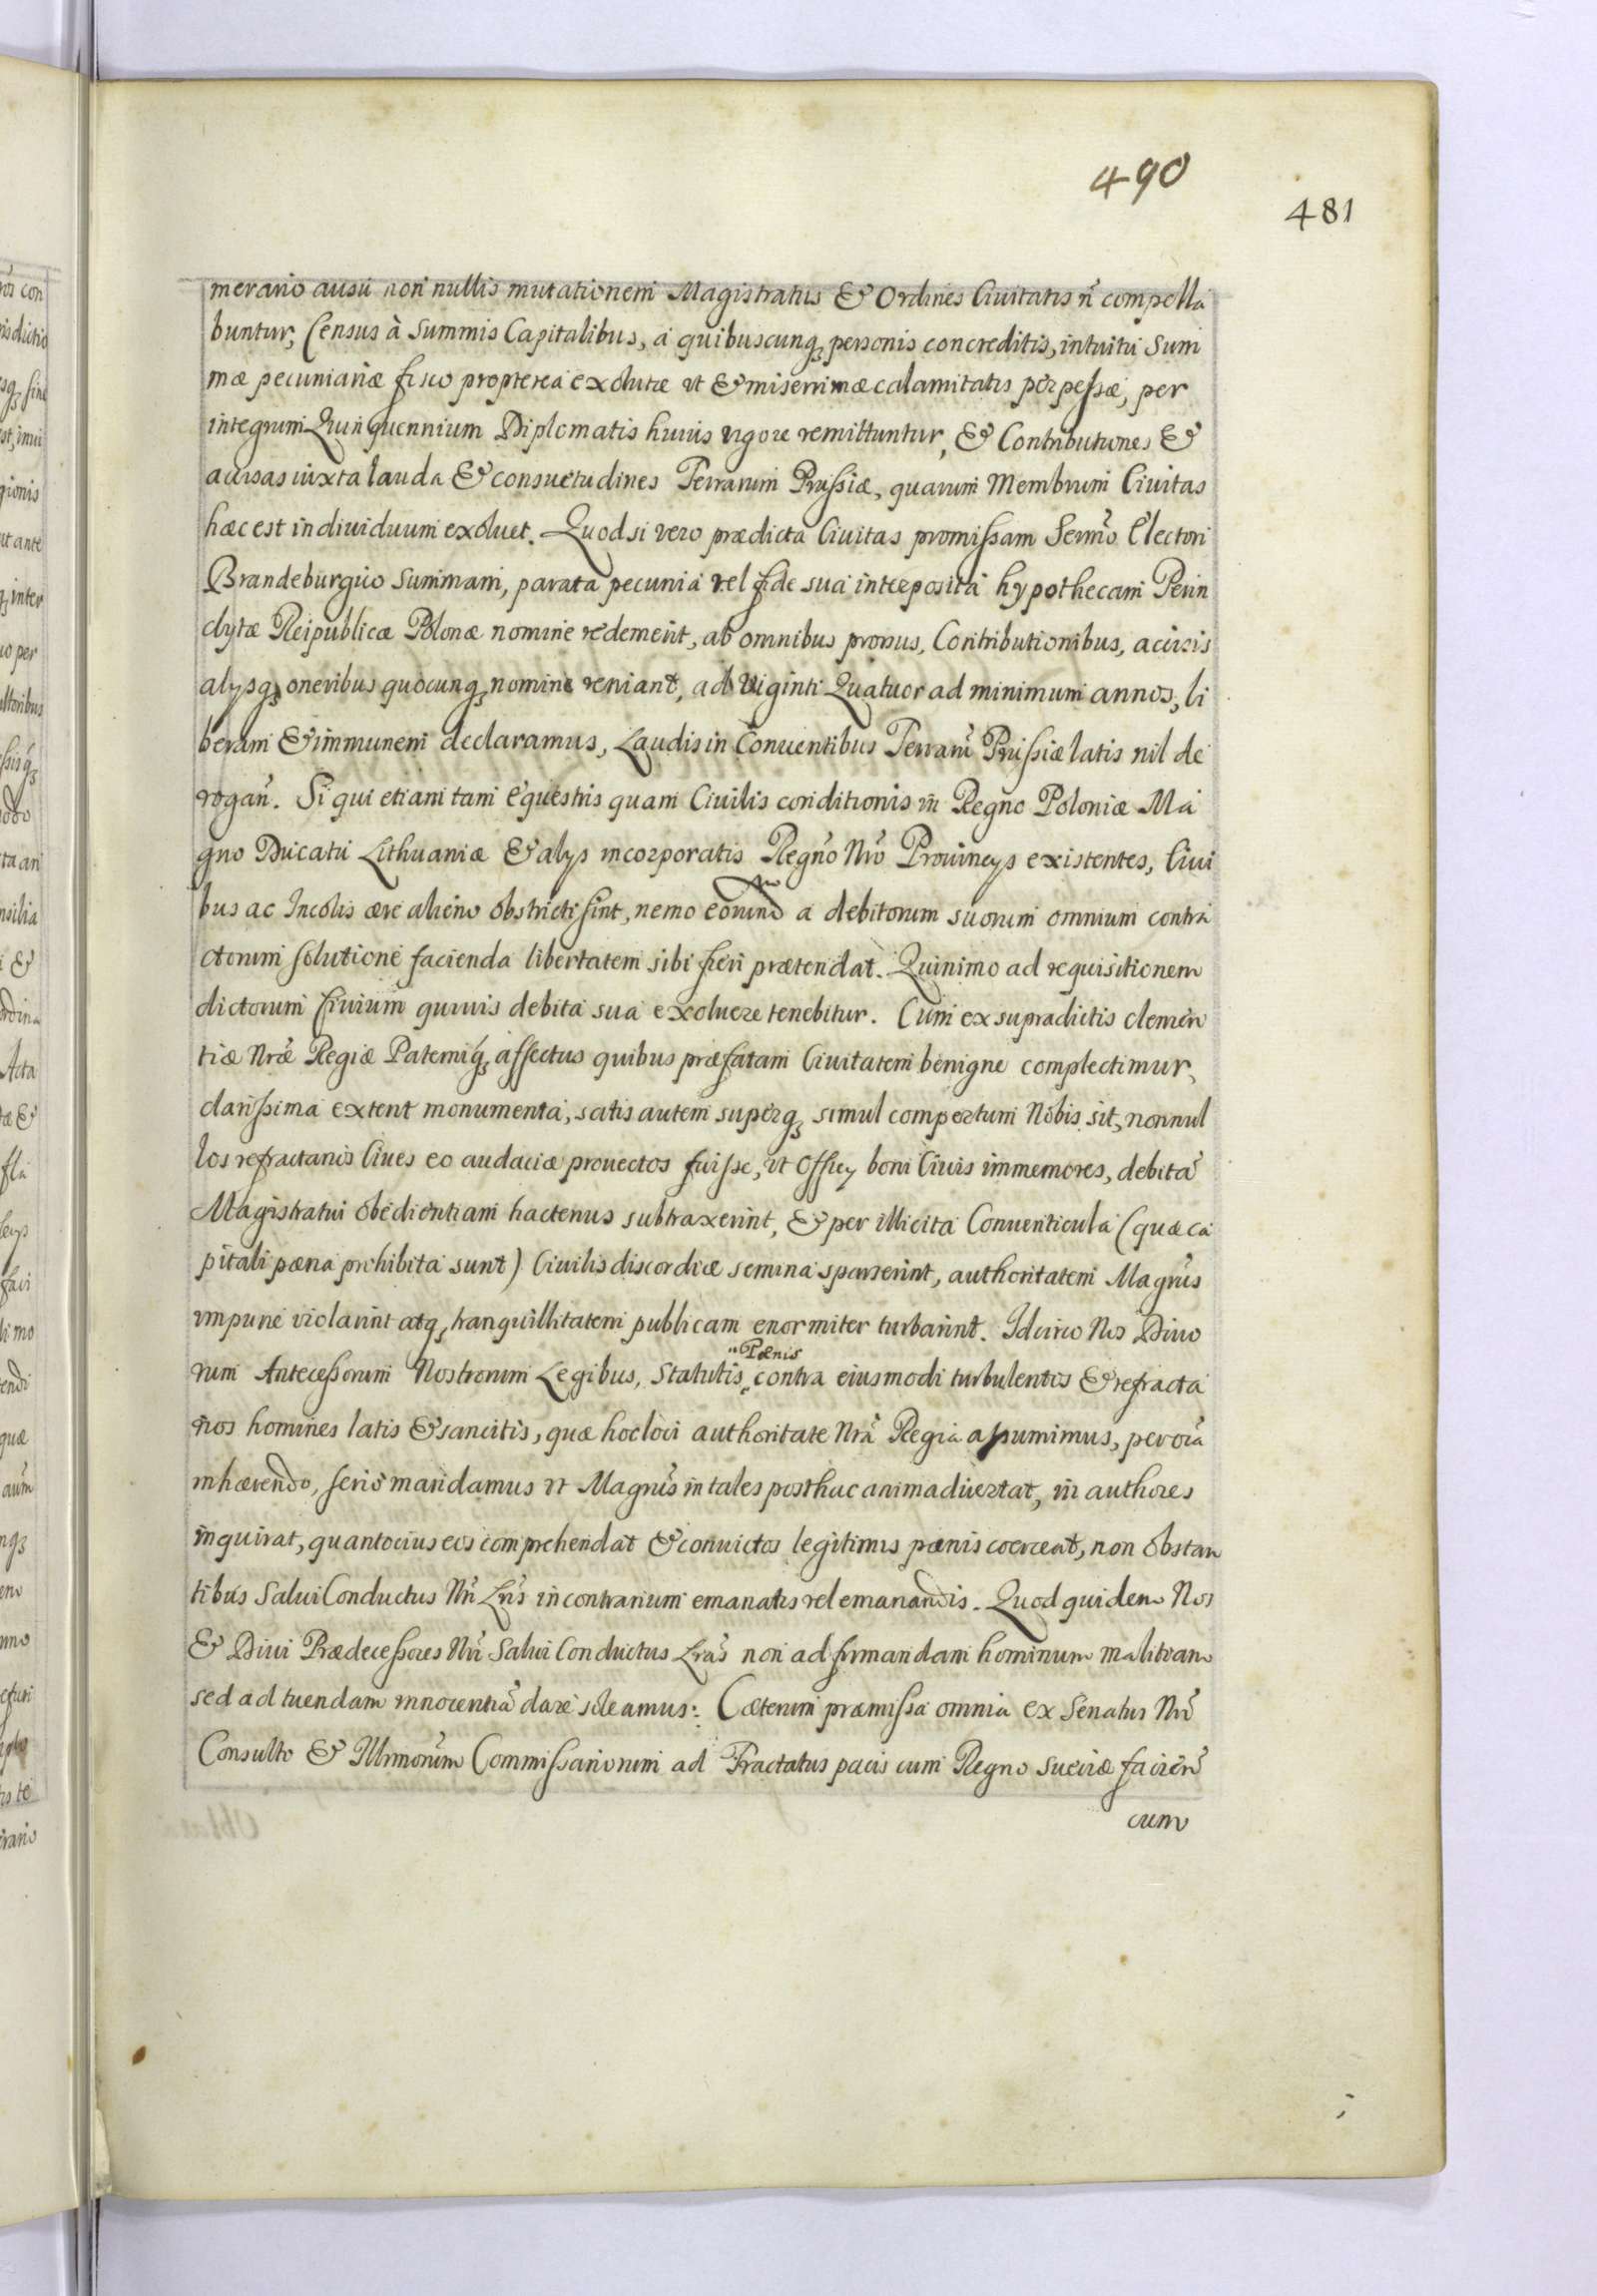 490
481
merario ausu non nullis mutationem Magistratus & Ordines Ciuitatis n̄ compella
buntur; Census à Summis Capitalibus, a quibuscunq; personis concreditis, intuitu Sum
mæ pecuniariæ fisco propterea exolutæ ut & miserrimæ calamitatis perpeſsæ, per
integrum Quinquennium Diplomatis huius vigore remittuntur, & Contributiones &
accisas iuxta lauda & consuetudines Terrarum Prussiæ, quarum Membrum Ciuitas
hæc est indiuiduum exoluet. Quod si vero prædicta Ciuitas promiſsam Sermō Electori
Brandeburgico Summam, parata pecunia vel fide sua interposita hypothecam Perin
clytæ Reipublicæ Polonæ nomine redemerit, ab omnibus prorsus, Contributionibus, accisis
alysq; oneribus quocunq; nomine veniant, ad Viginti Quatuor ad minimum annos, li
beram & immunem declaramus, Laudis in Conuentibus Terrarū Pruſsiæ latis nil de
rogan̄. Si qui etiam tam Equestris quam Ciuilis conditionis in Regno Poloniæ Ma
gno Ducatu Lithuaniæ & alys incorporatis Regnō Nrō Prouincys existentes, Ciui
bus ac Incolis ære alieno obstricti sint, nemo eorund a debitorum suorum omnium contra
ctorum solutione facienda libertatem sibi fieri prætendat. Quinimo ad requisitionem
dictorum Ciuium quiuis debita sua exoluere tenebitur. Cum ex supradictis clemen
tiæ Nræ Regiæ Paterniq; affectus quibus præfatam Ciuitatem benigne complectimur,
clariſsima extent monumenta, satis autem superq; simul compertum Nobis sit, nonnul
los refractarios Ciues eo audaciæ prouectos fuiſse, ut Officy boni Ciuis immemores, debitā
Magistratui obedientiam hactenus subtraxerint, & per illicita Conuenticula (quæ ca
pitali pæna prohibita sunt) Ciuilis discordiæ semina sparserint, authoritatem Magrūs
impune violarint atq; tranquillitatem publicam enormiter turbarint. Idcirco Nos Diuo
Pænis
rum Antecessorum Nostrorum Legibus, Statutis contra eiusmodi turbulentos & refracta
rios homines latis & sancitis, quæ hoc loci authoritate Nrā Regia aſsumimus, per oīa
inhærendo, serio mandamus ut Magrūs in tales posthac animaduertat, in authores
inquirat, quantocius eos comprehendat & conuictos legitimis pænis coerceat, non obstan
tibus Salui Conductus Nrī Lrīs in contrarium emanatis vel emanandis. Quod quidem Nos
& Diui Prædeceſsores Nrī Salui Conductus Lrās non ad firmandam hominum malitiam
sed ad tuendam innocentiā dare soleamus: Cæterum præmiſsa omnia ex Senatus Nrī
Consulto & Illrmorum Commiſsariorum ad Tractatus pacis cum Regno Sueciæ facien̄
cum